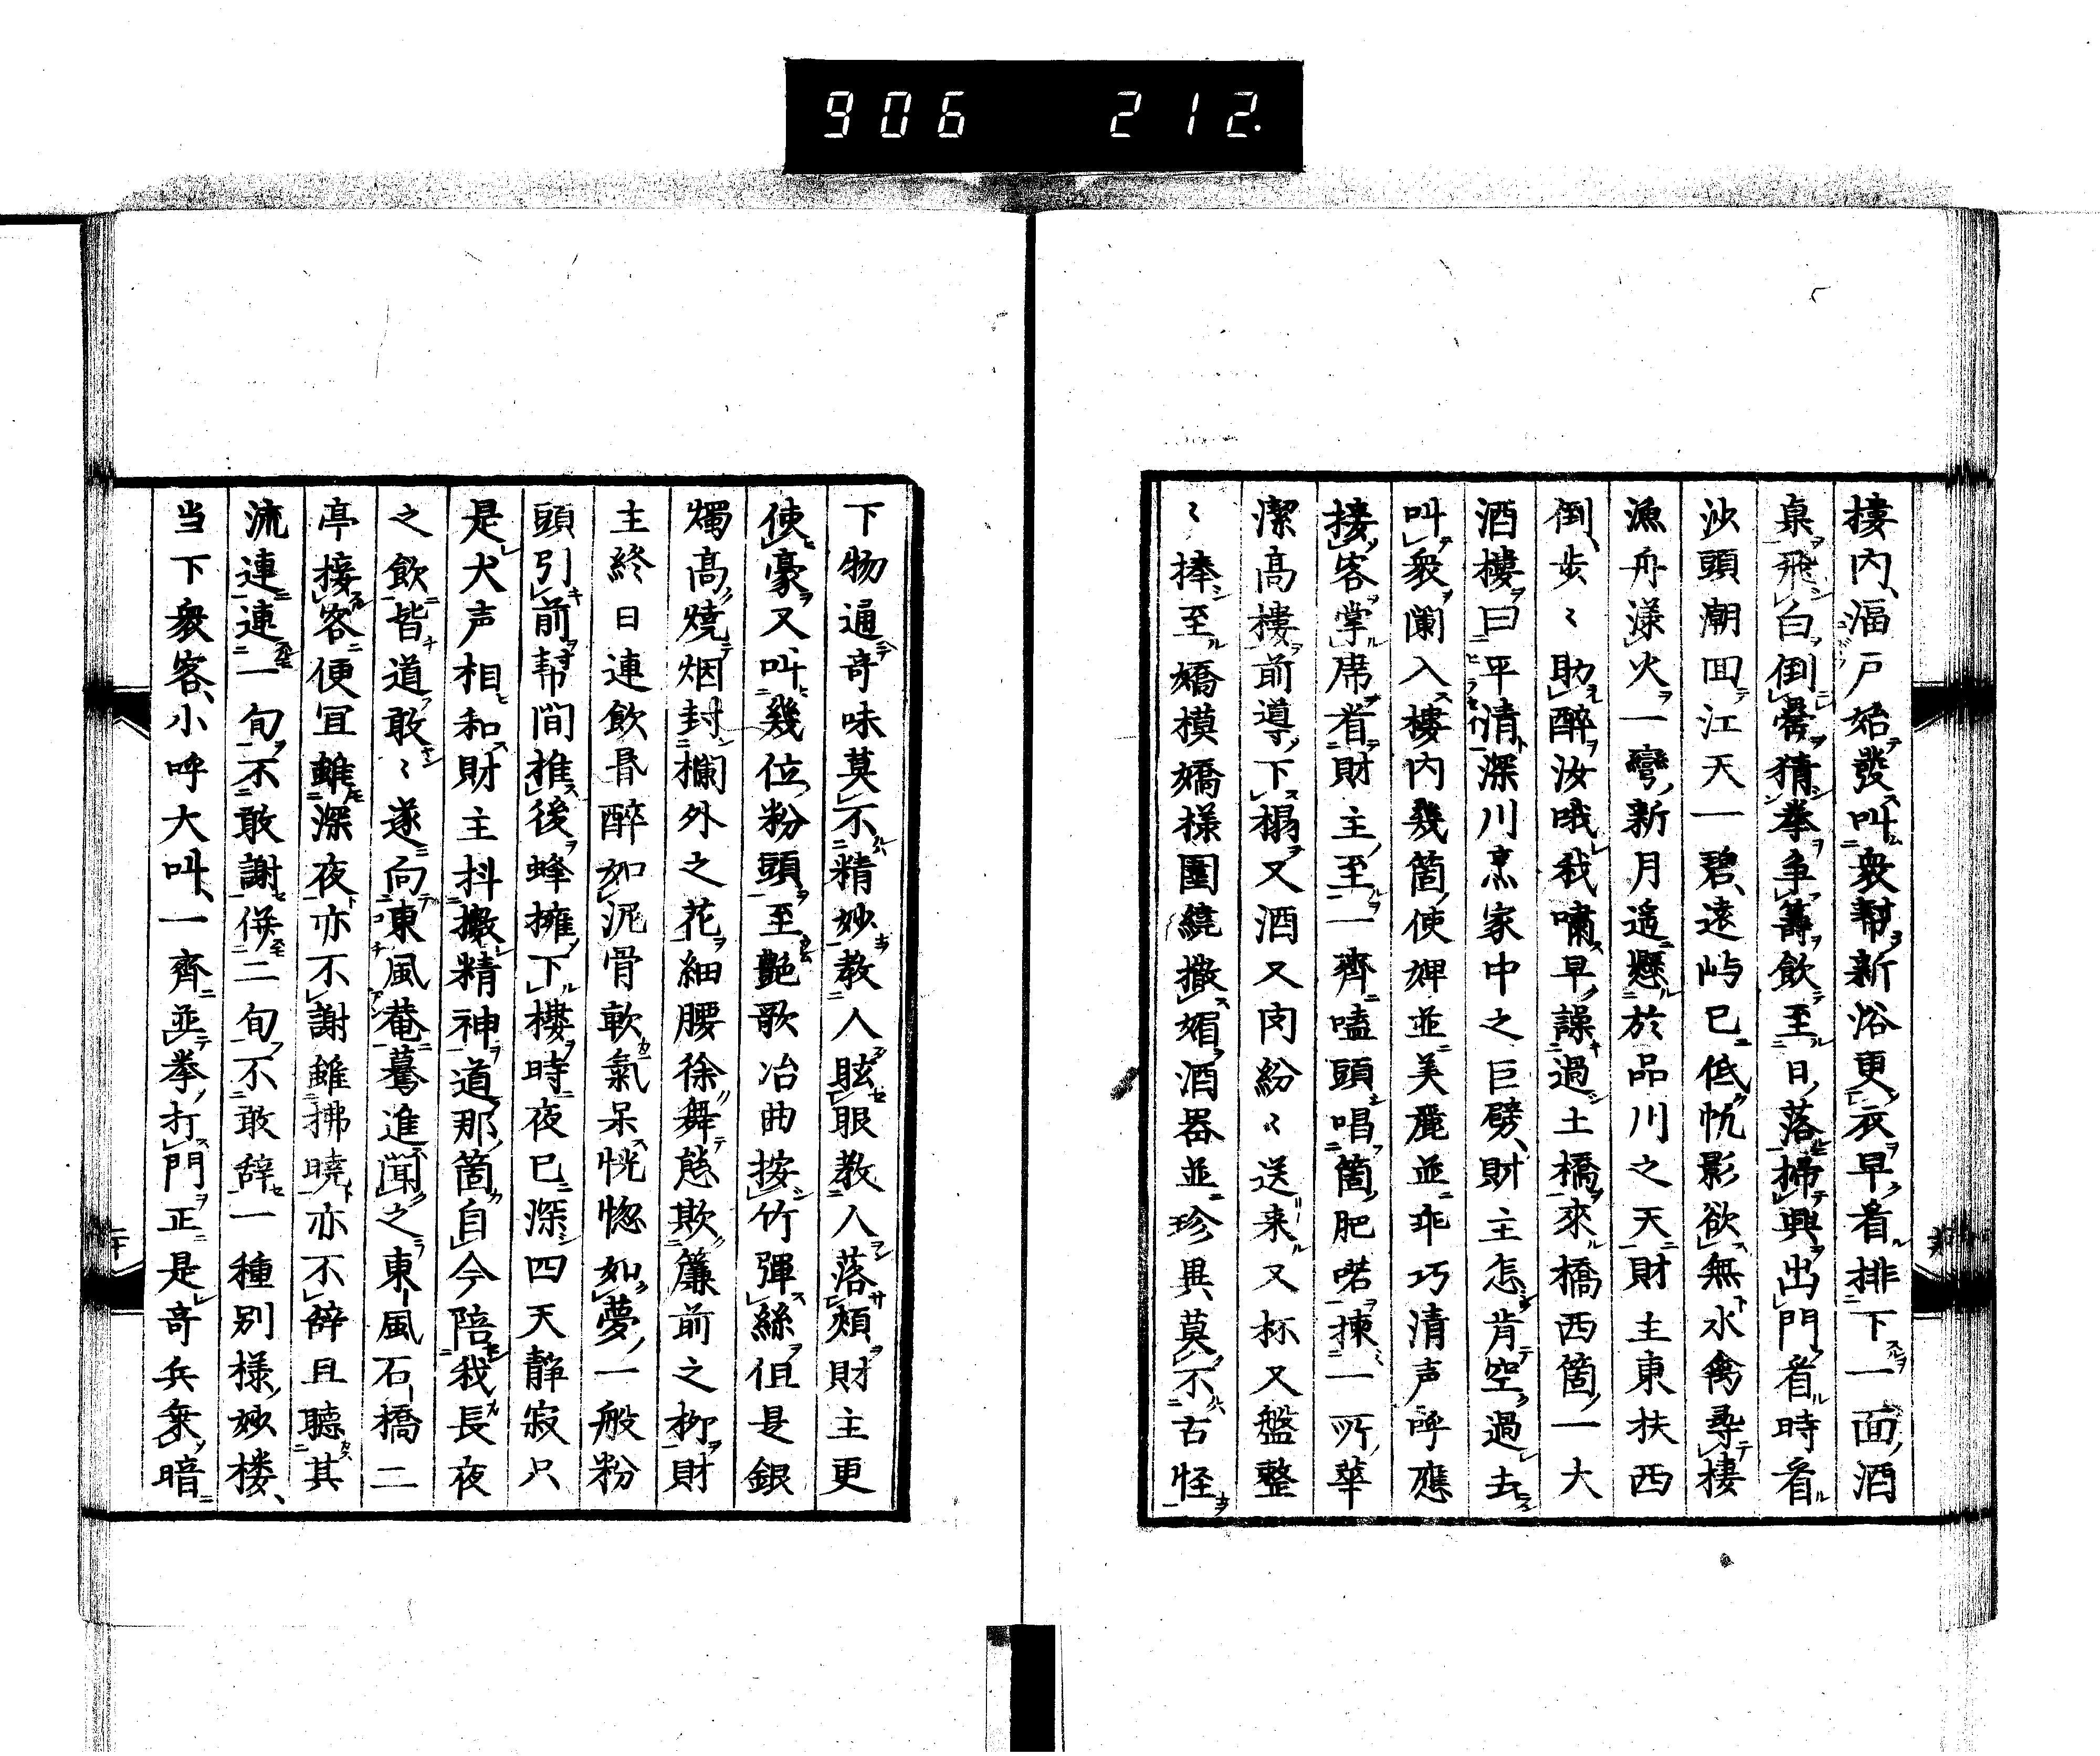 906 212.
楼内、湢戸始發叫衆幇、新浴更衣、早看排下一面、酒
桌飛白倒觥猜拳争籌飲至日落掃興出門看時看
沙頭潮回江天一碧、遠屿已低帆影欲無水禽尋棲
漁舟漾火一彎新月遥懸於品川之天財主東扶西
倒、歩〻助醉汝哦我嘯早譟過土橋來橋西箇、一大
酒樓曰平清深川烹家中之巨劈、財主怎肯空過去
叫衆闌入楼内幾箇使婢並美麗並乖巧清声呼應
接客掌席看財主至一齊嗑頭唱箇肥喏揀一所華
潔高樓前導下榻又酒又肉紛〻送来又杯又盤整
〻捧至嬌模嬌様團繞撒媚酒器並珍異莫不古怪
下物通奇味莫不精妙教人眩眼教人落頬財主更
使豪又叫幾位粉頭至艶歌冶曲按竹弾絲但是銀
燭高燒烟封欄外之花細腰徐舞態欺簾前之柳財
主終日連飲昏醉如泥骨軟氣呆恍惚如夢、一般粉
頭引前幇間推後蜂擁下樓時夜已深四天静寂只
是犬声相和財主抖擻精神道那箇自今陪我長夜
之飲皆道敢〻遂向東風菴驀進聞之東風石橋二
亭接客便冝雖深夜亦不謝雖拂曉亦不辞且聽其
流連連一旬不敢謝併二旬不敢辞一種別様妙楼、
当下衆客、小呼大叫、一齊並拳打門正是奇兵乗暗